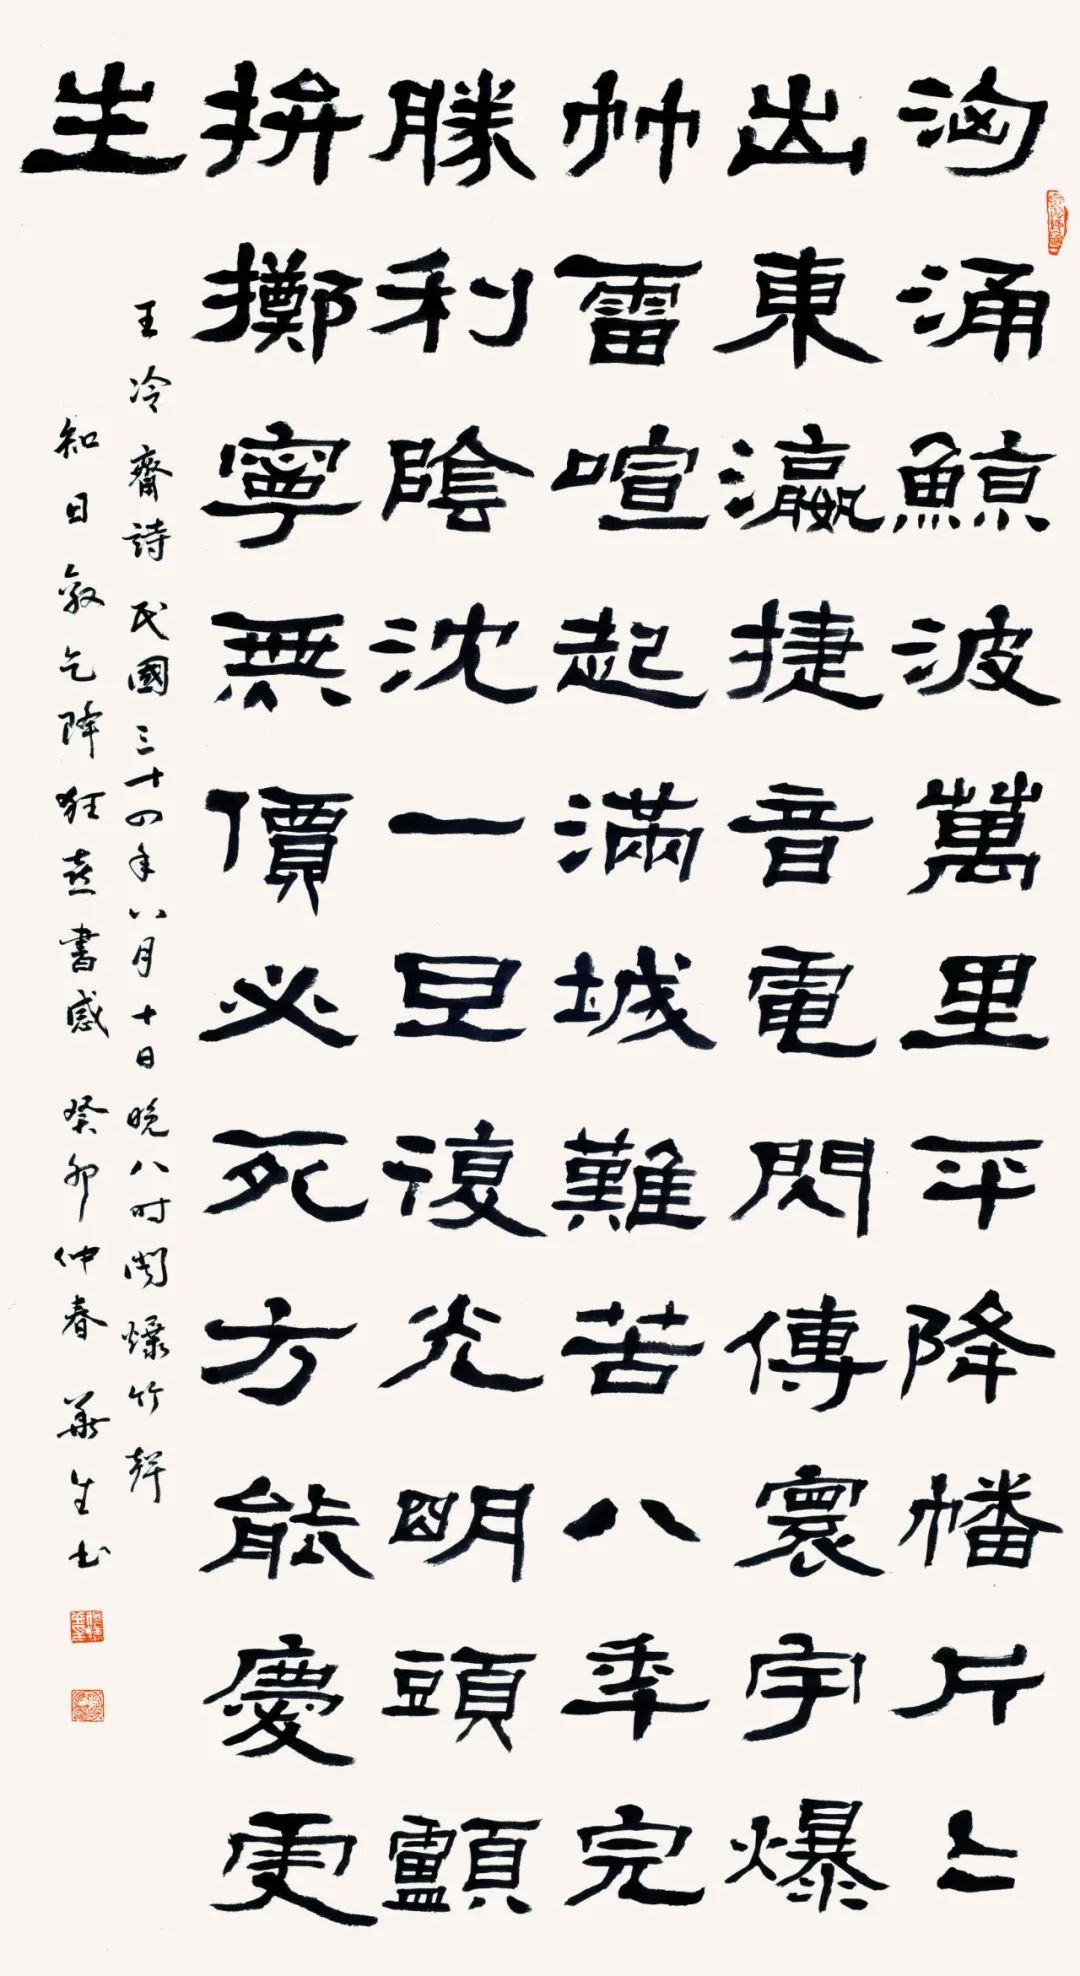 洶涌鯨波萬里平降幡片〻
出東瀛捷音電閃傳寰宇爆
竹雷喧起滿城難苦八秊完
勝利陰沈一旦復光明頭顱
拚擲寧無價必死方能慶更
生
王冷齋詩民國三十四年八月十日晚八时聞爆竹聲
知日敵乞降狂喜書感 癸卯仲春 華生书